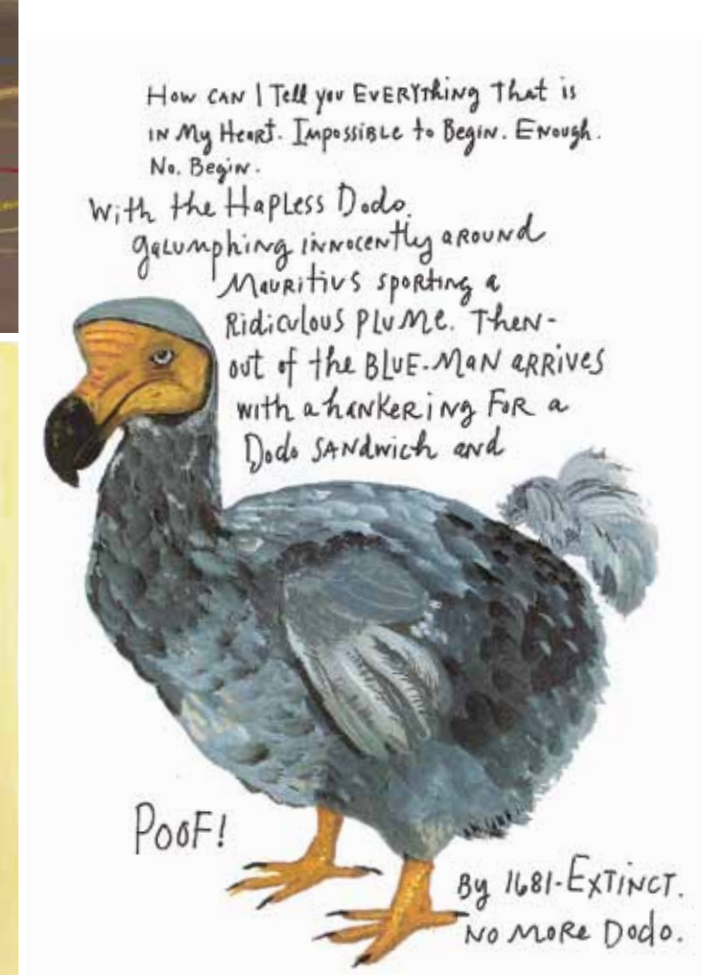 How CAN I Tell you EVERYThing That is
IN My Heart. Impossible to Begin. Enough.
No. Begin.
With the Hapless Dodo.
galumphing innocently around
Mauritius sporting a
Ridiculous Plume. Then-
out of the BLUE-MAN ARRIVES
with a hankering For a
Dodo SANdwich and
PooF!
By 1681-EXTINCT.
No More Dodo.